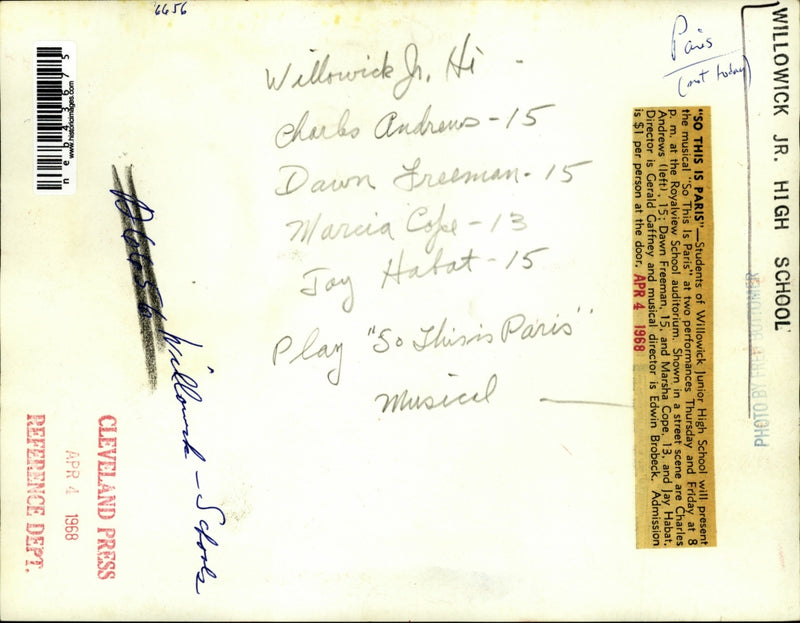 6656
Willowick Jr. Hi
Charles Andrews - 15
Dawn Freeman - 15
Marcia Cope - 13
Jay Habat - 15
Play "So This is Paris"
Musical
Paris
(not today)
WILLOWICK JR. HIGH SCHOOL
PHOTO BY FRED BOTTOMER
"SO THIS IS PARIS"—Students of Willowick Junior High School will present
the musical "So This Is Paris" at two performances Thursday and Friday at 8
p. m. at the Royalview School auditorium. Shown in a street scene are Charles
Andrews (left), 15; Dawn Freeman, 15, and Marsha Cope, 13, and Jay Habat.
Director is Gerald Gaffney and musical director is Edwin Brobeck. Admission
is $1 per person at the door. APR 4 1968
neb43675
www.historicimages.com
Willowick - Schools
CLEVELAND PRESS
APR 4 1968
REFERENCE DEPT.